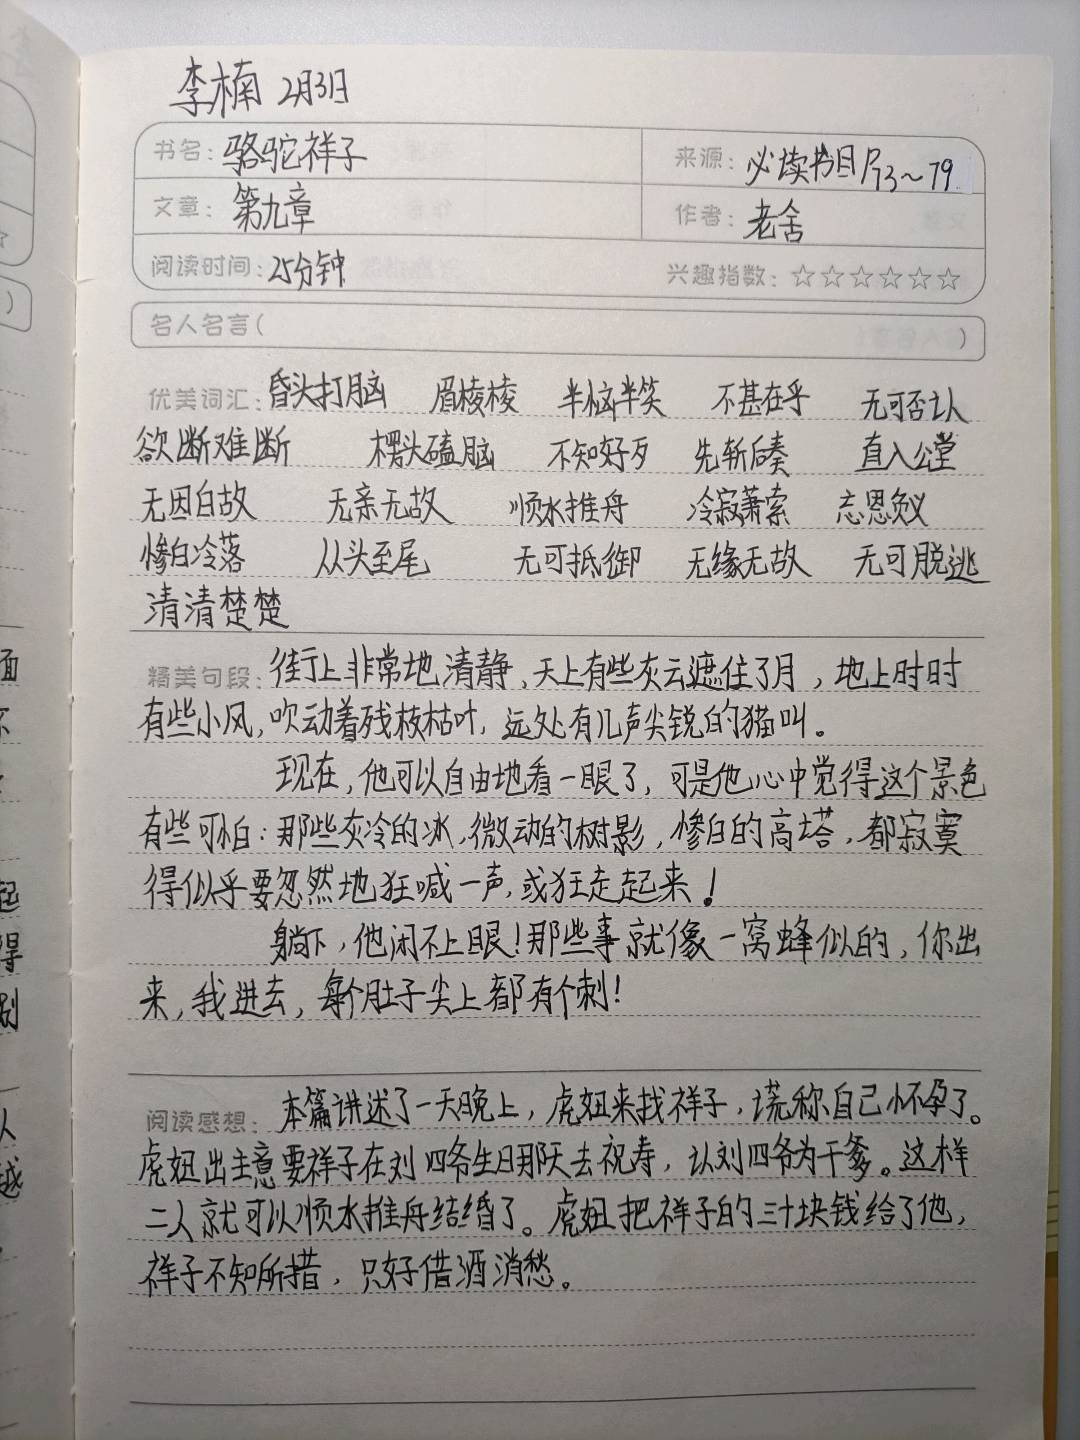 李楠 2月3日
书名：骆驼祥子 来源：必读书目P73～79
文章：第九章 作者：老舍
阅读时间：25分钟 兴趣指数：☆☆☆☆☆☆
名人名言（ ）
优美词汇：昏头打脑 眉棱棱 半恼半笑 不甚在乎 无可否认
欲断难断 楞头磕脑 不知好歹 先斩后奏 直入公堂
无因白故 无亲无故 顺水推舟 冷寂萧索 忘恩负义
惨白冷落 从头至尾 无可抵御 无缘无故 无可脱逃
清清楚楚
精美句段：街上非常地清静，天上有些灰云遮住了月，地上时时
有些小风，吹动着残枝枯叶，远处有几声尖锐的猫叫。
现在，他可以自由地看一眼了，可是他心中觉得这个景色
有些可怕：那些灰冷的冰，微动的树影，惨白的高塔，都寂寞
得似乎要忽然地狂喊一声，或狂走起来！
躺下，他闭不上眼！那些事就像一窝蜂似的，你出
来，我进去，每个肚子尖上都有个刺！
阅读感想：本篇讲述了一天晚上，虎妞来找祥子，谎称自己怀孕了。
虎妞出主意要祥子在刘四爷生日那天去祝寿，认刘四爷为干爹。这样
二人就可以顺水推舟结婚了。虎妞把祥子的三十块钱给了他，
祥子不知所措，只好借酒消愁。
面
起
得
别
人
越